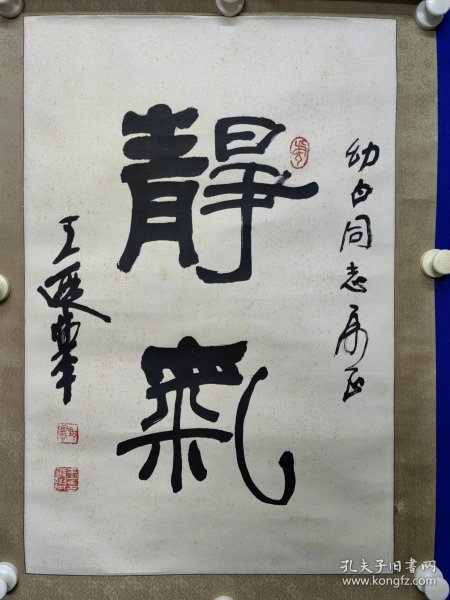 幼白同志属正
靜氣
王遐舉
孔夫子旧书网
www.kongfz.com